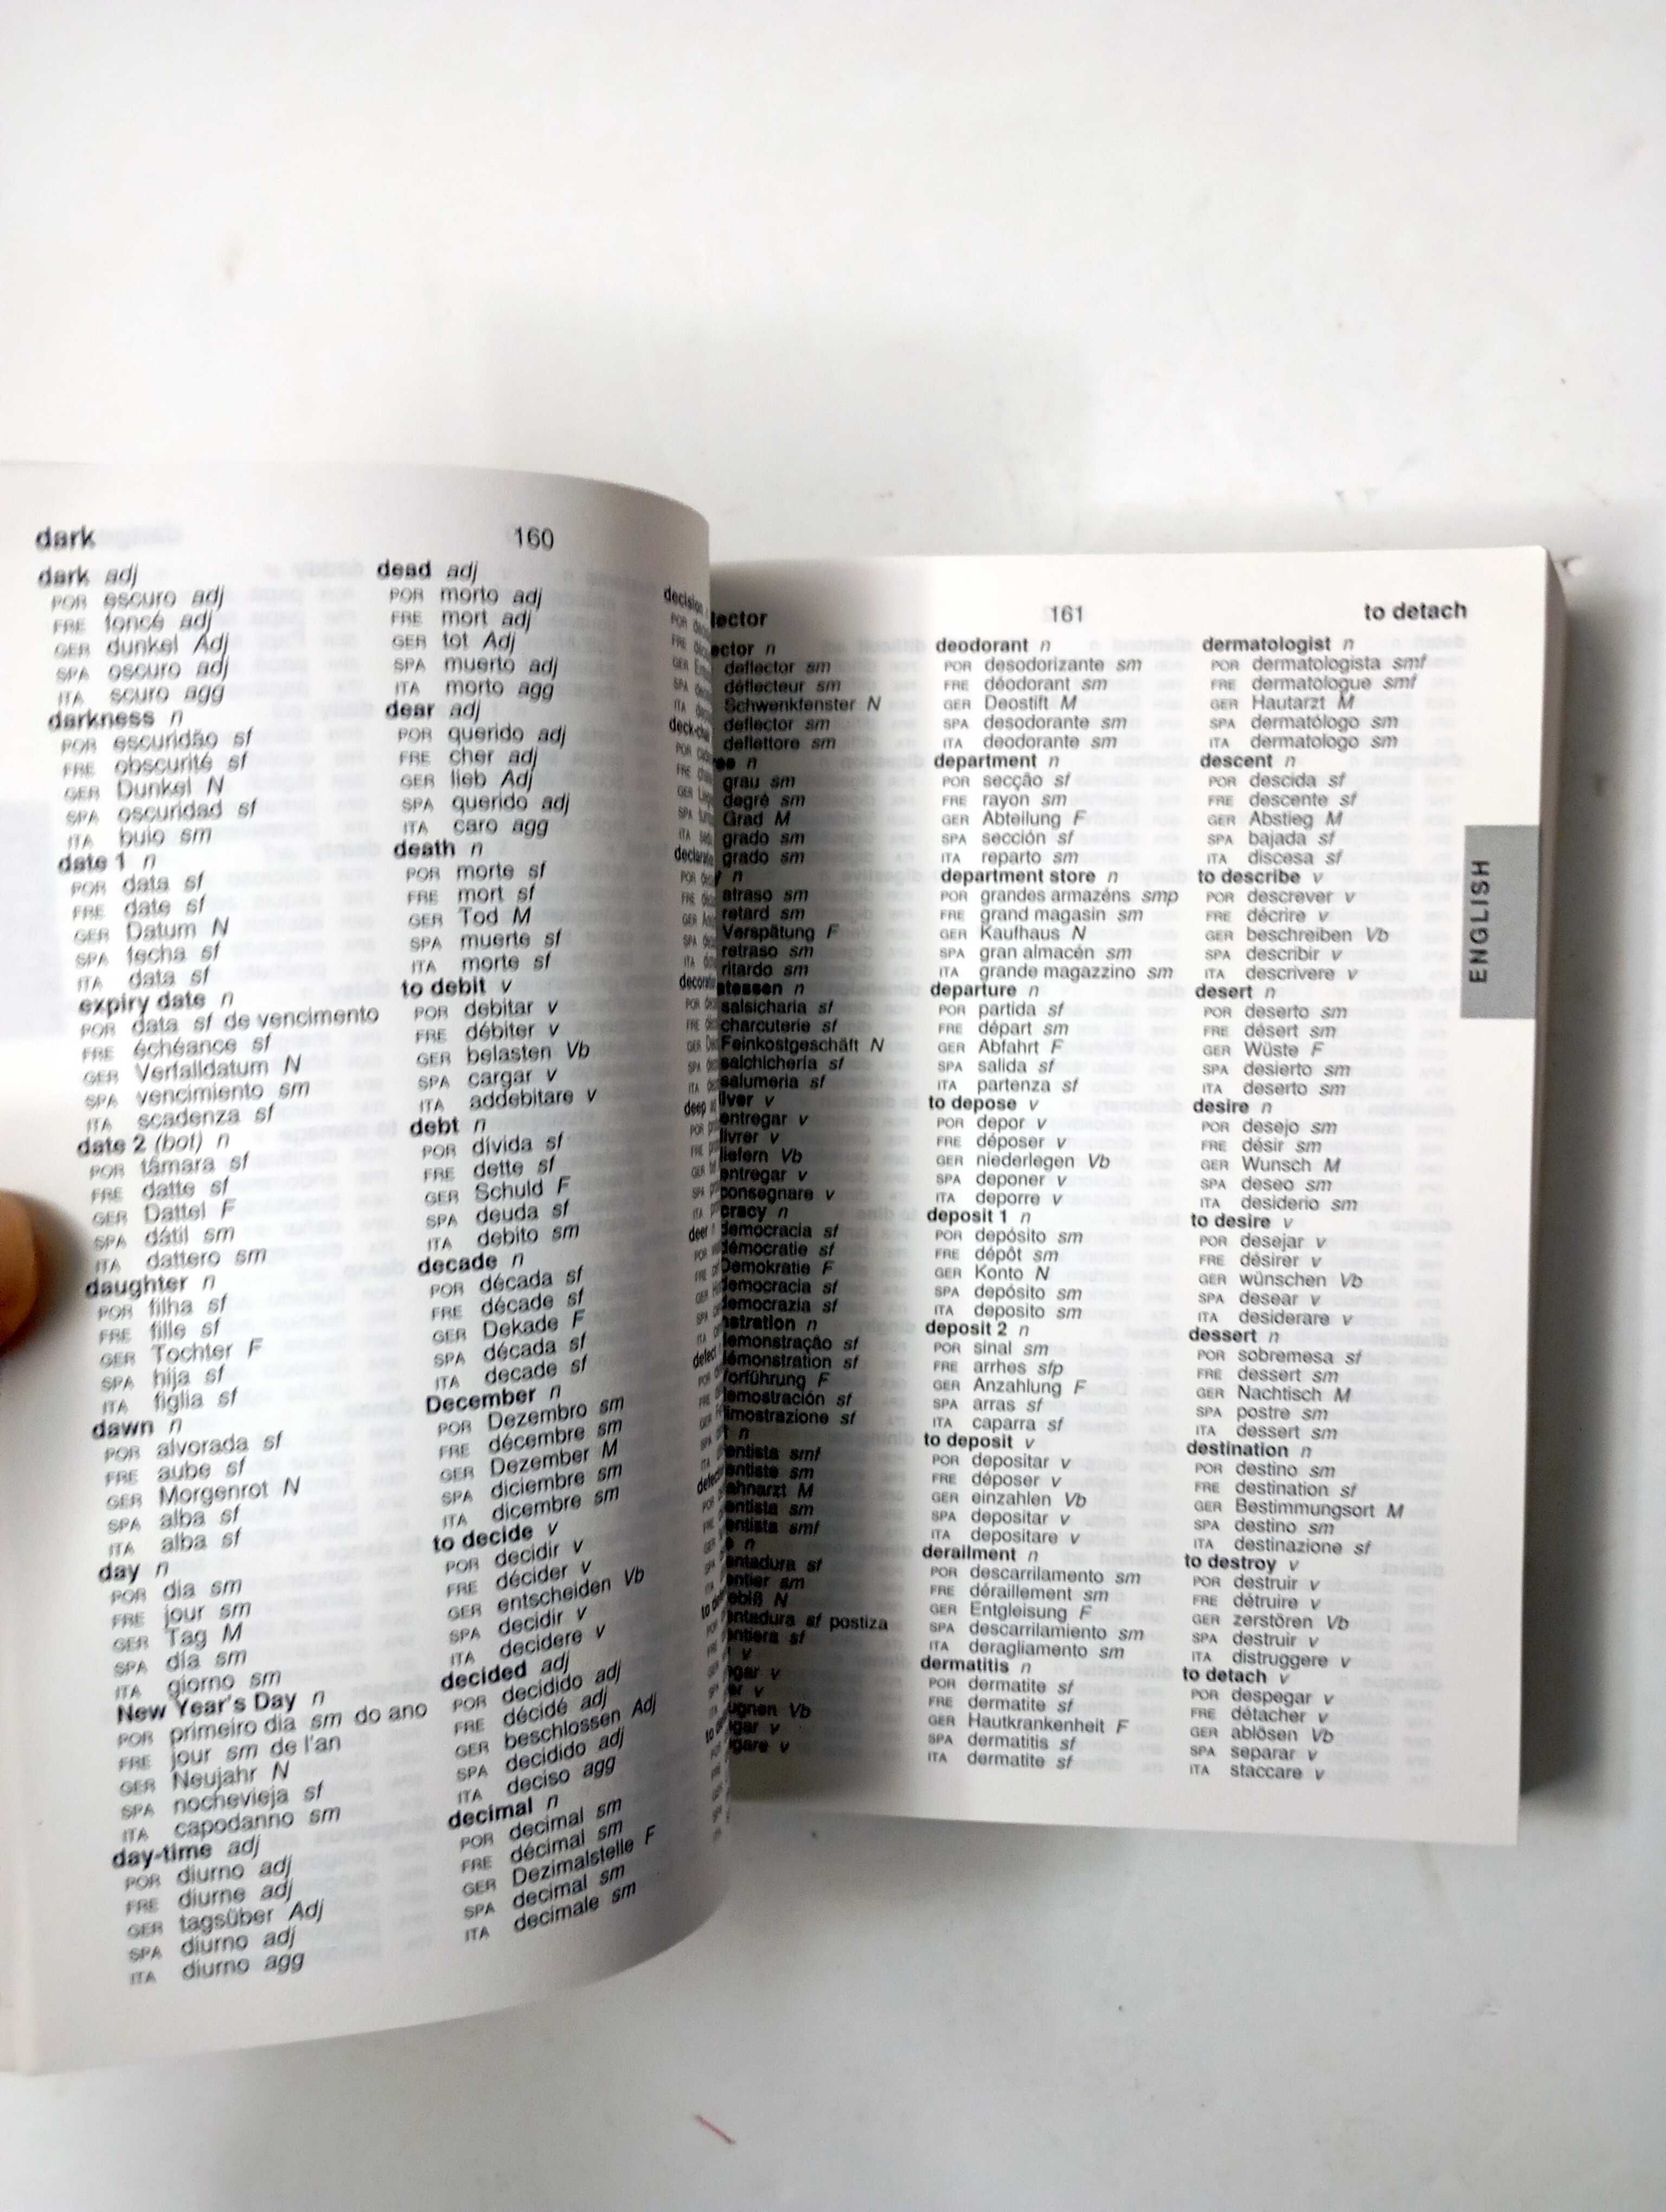 dark
160
dark adj
POR escuro adj
FRE foncé adj
GER dunkel Adj
SPA oscuro adj
ITA scuro agg
darkness n
POR escuridão sf
FRE obscurité sf
GER Dunkel N
SPA oscuridad sf
ITA buio sm
date 1 n
POR data sf
FRE date sf
GER Datum N
SPA fecha sf
ITA data sf
expiry date n
POR data sf de vencimento
FRE échéance sf
GER Verfalldatum N
SPA vencimiento sm
ITA scadenza sf
date 2 (bot) n
POR tâmara sf
FRE datte sf
GER Dattel F
SPA dátil sm
ITA dattero sm
daughter n
POR filha sf
FRE fille sf
GER Tochter F
SPA hija sf
ITA figlia sf
dawn n
POR alvorada sf
FRE aube sf
GER Morgenrot N
SPA alba sf
ITA alba sf
day n
POR dia sm
FRE jour sm
GER Tag M
SPA día sm
ITA giorno sm
New Year's Day n
POR primeiro dia sm do ano
FRE jour sm de l'an
GER Neujahr N
SPA nochevieja sf
ITA capodanno sm
day-time adj
POR diurno adj
FRE diurne adj
GER tagsüber Adj
SPA diurno adj
ITA diurno agg
dead adj
POR morto adj
FRE mort adj
GER tot Adj
SPA muerto adj
ITA morto agg
dear adj
POR querido adj
FRE cher adj
GER lieb Adj
SPA querido adj
ITA caro agg
death n
POR morte sf
FRE mort sf
GER Tod M
SPA muerte sf
ITA morte sf
to debit v
POR debitar v
FRE débiter v
GER belasten Vb
SPA cargar v
ITA addebitare v
debt n
POR dívida sf
FRE dette sf
GER Schuld F
SPA deuda sf
ITA debito sm
decade n
POR década sf
FRE décade sf
GER Dekade F
SPA década sf
ITA decade sf
December n
POR Dezembro sm
FRE décembre sm
GER Dezember M
SPA diciembre sm
ITA dicembre sm
to decide v
POR decidir v
FRE décider v
GER entscheiden Vb
SPA decidir v
ITA decidere v
decided adj
POR decidido adj
FRE décidé adj
GER beschlossen Adj
SPA decidido adj
ITA deciso agg
decimal n
POR decimal sm
FRE décimal sm
GER Dezimalstelle F
SPA decimal sm
ITA decimale sm
decision
deep
lector
161
to detach
ector n
deflector sm
déflecteur sm
Schwenkfenster N
deflector sm
deflettore sm
n
grau sm
degré sm
Grad M
grado sm
grado sm
n
atraso sm
retard sm
Verspätung F
retraso sm
ritardo sm
atessen n
salsicharia sf
charcuterie sf
Feinkostgeschäft N
salchichería sf
salumeria sf
liver v
entregar v
livrer v
liefern Vb
entregar v
consegnare v
cracy n
democracia sf
démocratie sf
Demokratie F
democracia sf
democrazia sf
stration n
demonstração sf
démonstration sf
orführung F
demostración sf
imostrazione sf
n
entista smf
entiste sm
ahnarzt M
entista sm
entista smf
n
entadura sf
entier sm
ebiß N
entadura sf postiza
entiera sf
v
gar v
er v
ugnen Vb
gar v
gare v
deodorant n
POR desodorizante sm
FRE déodorant sm
GER Deostift M
SPA desodorante sm
ITA deodorante sm
department n
POR secção sf
FRE rayon sm
GER Abteilung F
SPA sección sf
ITA reparto sm
department store n
POR grandes armazéns smp
FRE grand magasin sm
GER Kaufhaus N
SPA gran almacén sm
ITA grande magazzino sm
departure n
POR partida sf
FRE départ sm
GER Abfahrt F
SPA salida sf
ITA partenza sf
to depose v
POR depor v
FRE déposer v
GER niederlegen Vb
SPA deponer v
ITA deporre v
deposit 1 n
POR depósito sm
FRE dépôt sm
GER Konto N
SPA depósito sm
ITA deposito sm
deposit 2 n
POR sinal sm
FRE arrhes sfp
GER Anzahlung F
SPA arras sf
ITA caparra sf
to deposit v
POR depositar v
FRE déposer v
GER einzahlen Vb
SPA depositar v
ITA depositare v
derailment n
POR descarrilamento sm
FRE déraillement sm
GER Entgleisung F
SPA descarrilamiento sm
ITA deragliamento sm
dermatitis n
POR dermatite sf
FRE dermatite sf
GER Hautkrankenheit F
SPA dermatitis sf
ITA dermatite sf
dermatologist n
POR dermatologista smf
FRE dermatologue smf
GER Hautarzt M
SPA dermatólogo sm
ITA dermatologo sm
descent n
POR descida sf
FRE descente sf
GER Abstieg M
SPA bajada sf
ITA discesa sf
to describe v
POR descrever v
FRE décrire v
GER beschreiben Vb
SPA describir v
ITA descrivere v
desert n
POR deserto sm
FRE désert sm
GER Wüste F
SPA desierto sm
ITA deserto sm
desire n
POR desejo sm
FRE désir sm
GER Wunsch M
SPA deseo sm
ITA desiderio sm
to desire v
POR desejar v
FRE désirer v
GER wünschen Vb
SPA desear v
ITA desiderare v
dessert n
POR sobremesa sf
FRE dessert sm
GER Nachtisch M
SPA postre sm
ITA dessert sm
destination n
POR destino sm
FRE destination sf
GER Bestimmungsort M
SPA destino sm
ITA destinazione sf
to destroy v
POR destruir v
FRE détruire v
GER zerstören Vb
SPA destruir v
ITA distruggere v
to detach v
POR despegar v
FRE détacher v
GER ablösen Vb
SPA separar v
ITA staccare v
ENGLISH